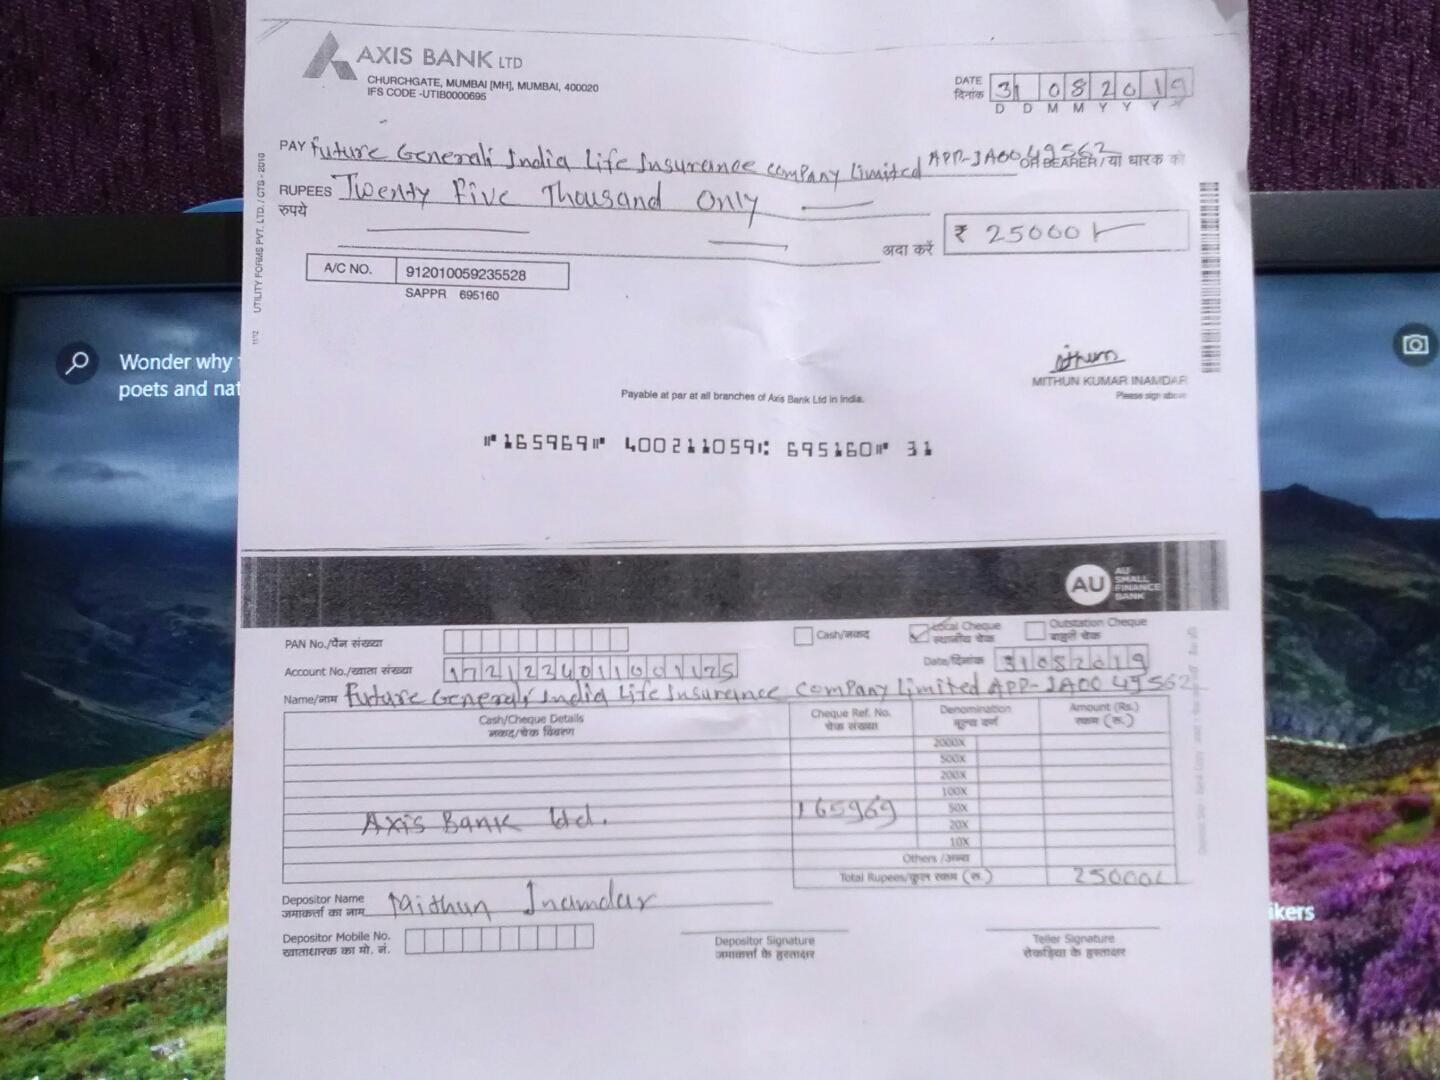 AXIS BANK LTD
CHURCHGATE, MUMBAI [MH], MUMBAI, 400020
IFS CODE -UTIB0000695
DATE दिनांक 31 08 2019
D D M M Y Y Y
PAY Future Generali India Life Insurance company Limited APP-JA0049562 OR BEARER / या धारक को
RUPEES रुपये Twenty Five Thousand Only
अदा करें ₹ 25000/-
A/C NO. 912010059235528
SAPPR 695160
UTILITY FORMS PVT. LTD. / CTS - 2010
MITHUN KUMAR INAMDAR
Please sign above
Payable at par at all branches of Axis Bank Ltd in India.
⑈165969⑈ 400211059⑆ 695160⑈ 31
Wonder why
poets and nat
AU AU SMALL FINANCE BANK
PAN No./पैन संख्या Cash/नकद Local Cheque स्थानीय चेक Outstation Cheque बाहरी चेक
Account No./खाता संख्या 17212234011001125 Date/दिनांक 31082019
Name/नाम Future Generali India Life Insurance company Limited APP-JA0049562
Cash/Cheque Details नकद/चेक विवरण Cheque Ref. No. चेक संख्या Denomination मूल्य वर्ग Amount (Rs.) रकम (रू.)
2000X
500X
200X
100X
Axis Bank Ltd. 165969 50X
20X
10X
Others /अन्य
Total Rupees/कुल रकम (रू.) 25000/-
Depositor Name जमाकर्त्ता का नाम Mithun Inamdar
ikers
Depositor Mobile No. खाताधारक का मो. नं.
Depositor Signature जमाकर्त्ता के हस्ताक्षर Teller Signature रोकड़िया के हस्ताक्षर